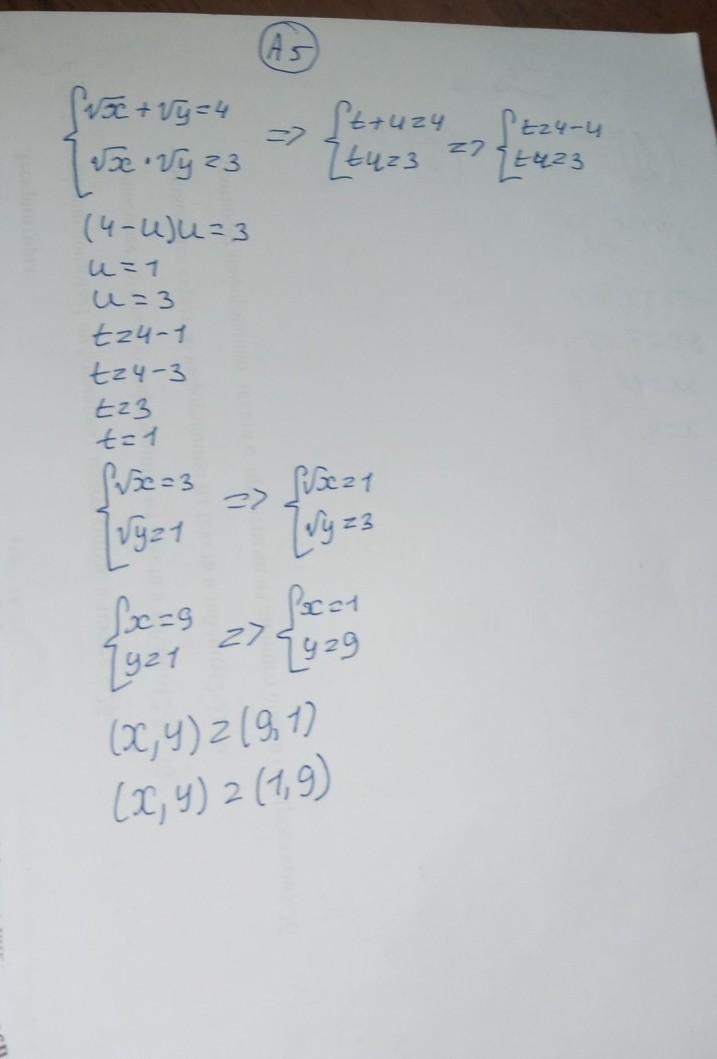 A5
{√x + √y = 4 => {t+u=4 => {t=4-u
{√x · √y = 3 {tu=3 {tu=3
(4-u)u = 3
u = 1
u = 3
t=4-1
t=4-3
t=3
t=1
{√x = 3 => {√x=1
{√y=1 {√y=3
{x=9 => {x=1
{y=1 {y=9
(x,y)=(9,1)
(x,y)=(1,9)